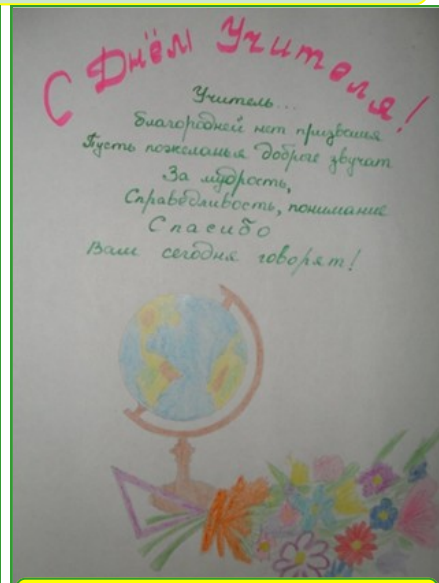 С Днём Учителя!
Учитель...
Благородней нет призвания
Пусть пожеланья добрые звучат
За мудрость,
Справедливость, понимание
Спасибо
Вам сегодня говорят!